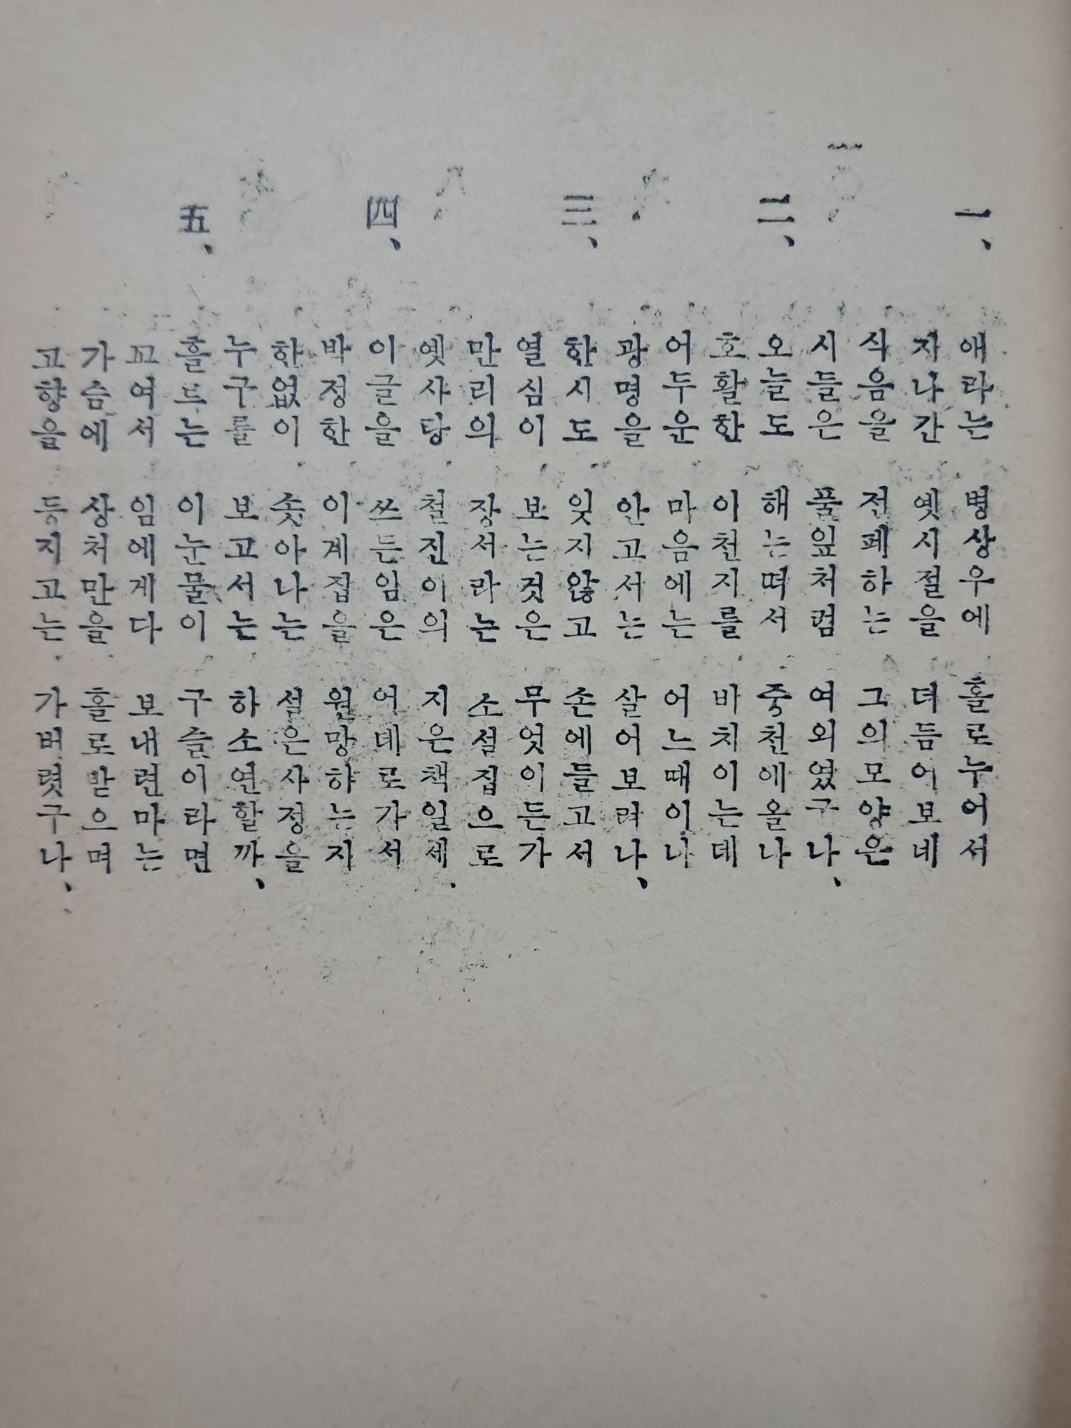 一、 애타는 병상우에 홀로누어서
지나간 옛시절을 더듬어보네
식음을 전폐하는 그의모양은
시들은 풀잎처럼 여외였구나、
二、 오늘도 해는떠서 중천에올나
호활한 이천지를 바치이는데
어두운 마음에는 어느때이나
광명을 안고서는 살어보려나、
三、 한시도 잊지않고 손에들고서
열심이 보는것은 무엇이든가
만리의 장서라는 소설집으로
옛사당 철진이의 지은책일세.
四、 이글을 쓰든임은 어데로가서
박정한 이계집을 원망하는지
한없이 솟아나는 설은사정을
누구를 보고서는 하소연할까、
五、 흘르는 이눈물이 구슬이라면
꼬여서 임에게다 보내련마는
가슴에 상처만을 홀로받으며
고향을 등지고는 가버렷구나、